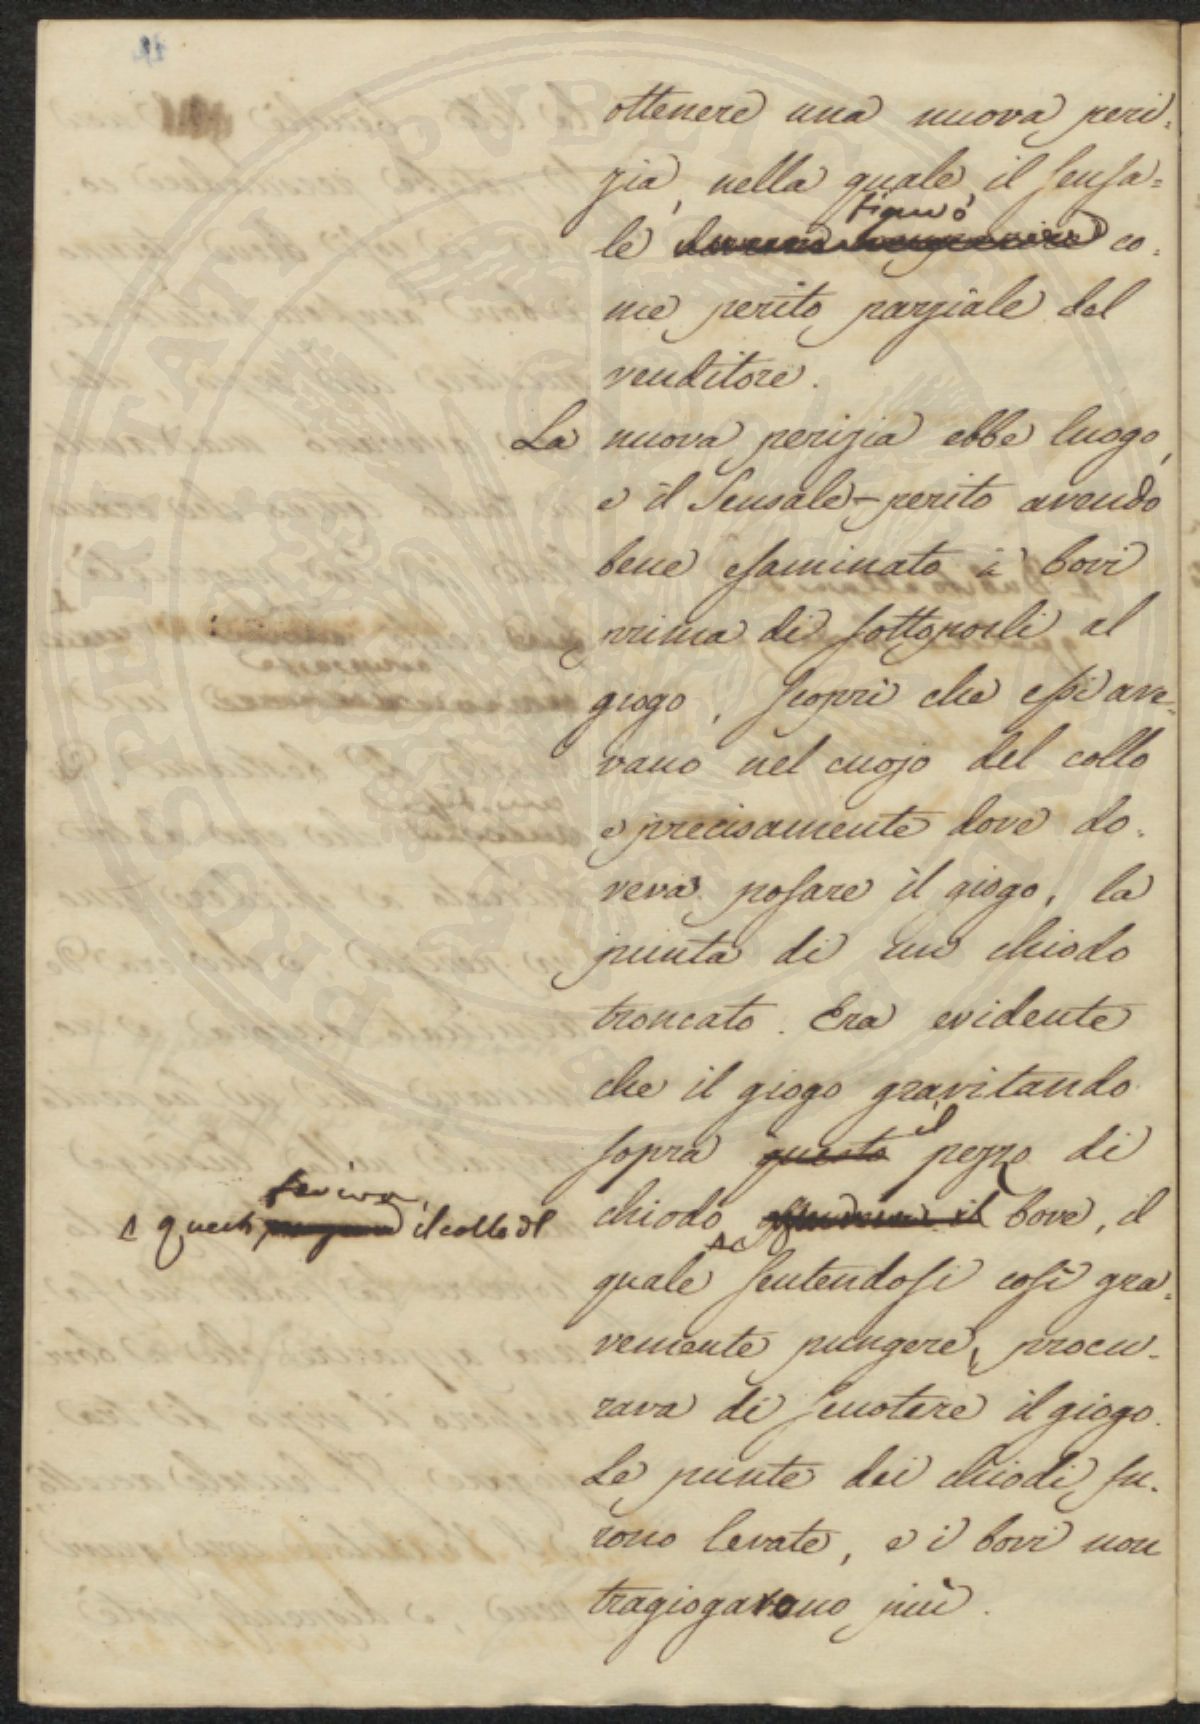 ottenere una nuova peri-
zia, nella quale il sensa-
figurò
le co-
me perito parziale del
venditore.
La nuova perizia ebbe luogo,
e il Sensale-perito avendo
bene esaminato i bovi
prima di sottoporli al
giogo, scoprì che essi ave-
vano nel cuojo del collo
e precisamente dove do-
veva posare il giogo, la
punta di un chiodo
troncato. Era evidente
che il giogo gravitando
sopra questo il pezzo di
feriva
questi il collo del
chiodo il bove, il
quale sentendosi così gra-
vemente pungere, procu-
rava di scuotere il giogo.
Le punte dei chiodi fu-
rono levate, e i bovi non
tragiogarono più.
PROPRIETATI PVBLICAE